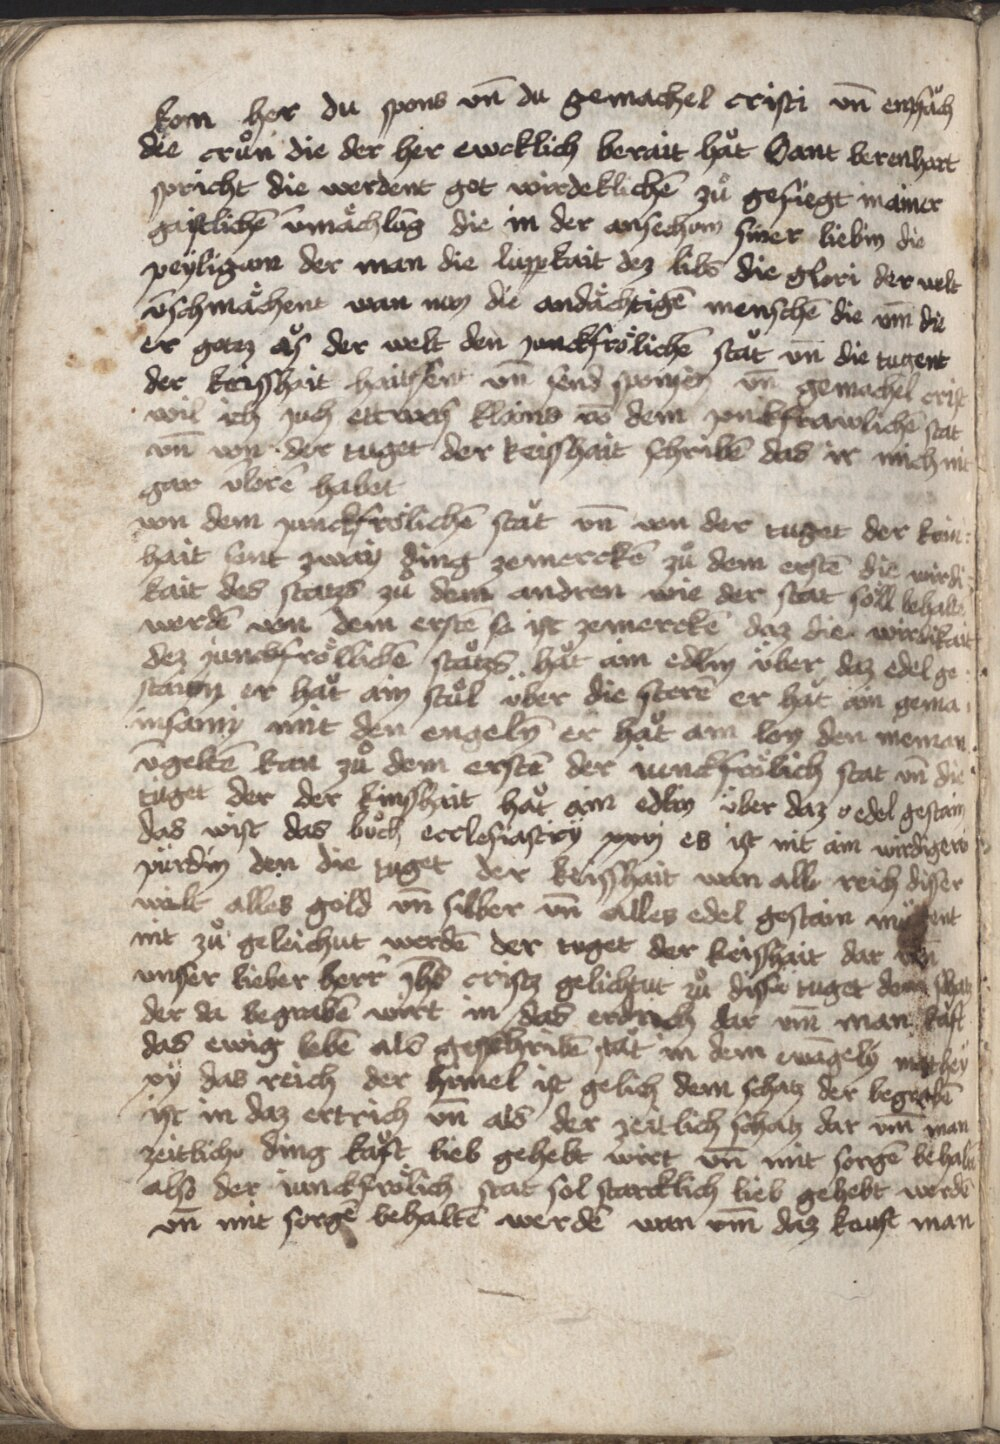 kom her du spons vn̄ du gemachel cristi vn̄ enpfaͤch
die cruͦn die der her ewcklich berait haͧt Sant berenhart
spricht die werdent got wirdeklichē zuͦ gefuͤegt in ainer
gaistlichē v̄maͤchlūg die in der ansechom siner liebin die
peyligam der man die lüppkait dez libs die glori der welt
v̄schmaͤhent wan nun die andaͤchtigē menschē die vm̄ die
er gotz als der welt den junckfroͤlichē staͧt vn̄ die tugent
der keisshait haltsent vn̄ send sponsen vn̄ gemachel crist
wil ich juch ettwas klains vō dem junckfrawlichē stat
vn̄ von der tuget der keisshait schribē das ir mich nit
gar v̄lorē habet
von dem junckfroͤlichē staͧt vn̄ von der tuget der kain
hait sint zway ding zemerckē zuͦ dem erstē die wirdi
kait des statzs zuͦ dem andren wie der stat soͤll behaltē
werdē von dem erstē so ist zemerckē daz die wirdikait
dez junckfroͤllichē staͧtzs haͧt ain edlin über daz edel ge
stainn er haͧt ain stuͦl über die sterē er haͧt ain gema
insamy mit den engelȳ er haͧt ain lon den nieman
v̄geltē kan zuͦ dem erstē der iunckfroͤlich stat vn̄ die
tuget der der kinsshait haͧt ain edlin über daz edel gestain
das wist das buͦch ecclesiasticy xxvj es ist nit ain wirdigere
pürdin den die tuget der keisshait wan alle reich disser
welt alles gold vn̄ silber vn̄ alles edel gestain mügent
nit zuͦ geleichut werdē der tuget der keisshait dar vm̄
unser lieber herr jhs cristz gelichtut zuͦ disse tuget dem schatz
der da begrabē wirt in das erdrich dar vm̄ man kaͧft
das ewig lebē als geschribē staͧt in dem ewāgely mathey
xij das reich der himel ist gelich dem schatz der begrabē
ist in daz ertrich vn̄ als der zeitlich schatz dar vm̄ man
zeitliche ding kaͧft lieb gehebt wirt vn̄ mit sorgē behaltē
also der iunckfroͤlich stat sol starcklich lieb gehebt werdē
vn̄ mit sorgē behaltē werdē wan vm̄ daz kouft man